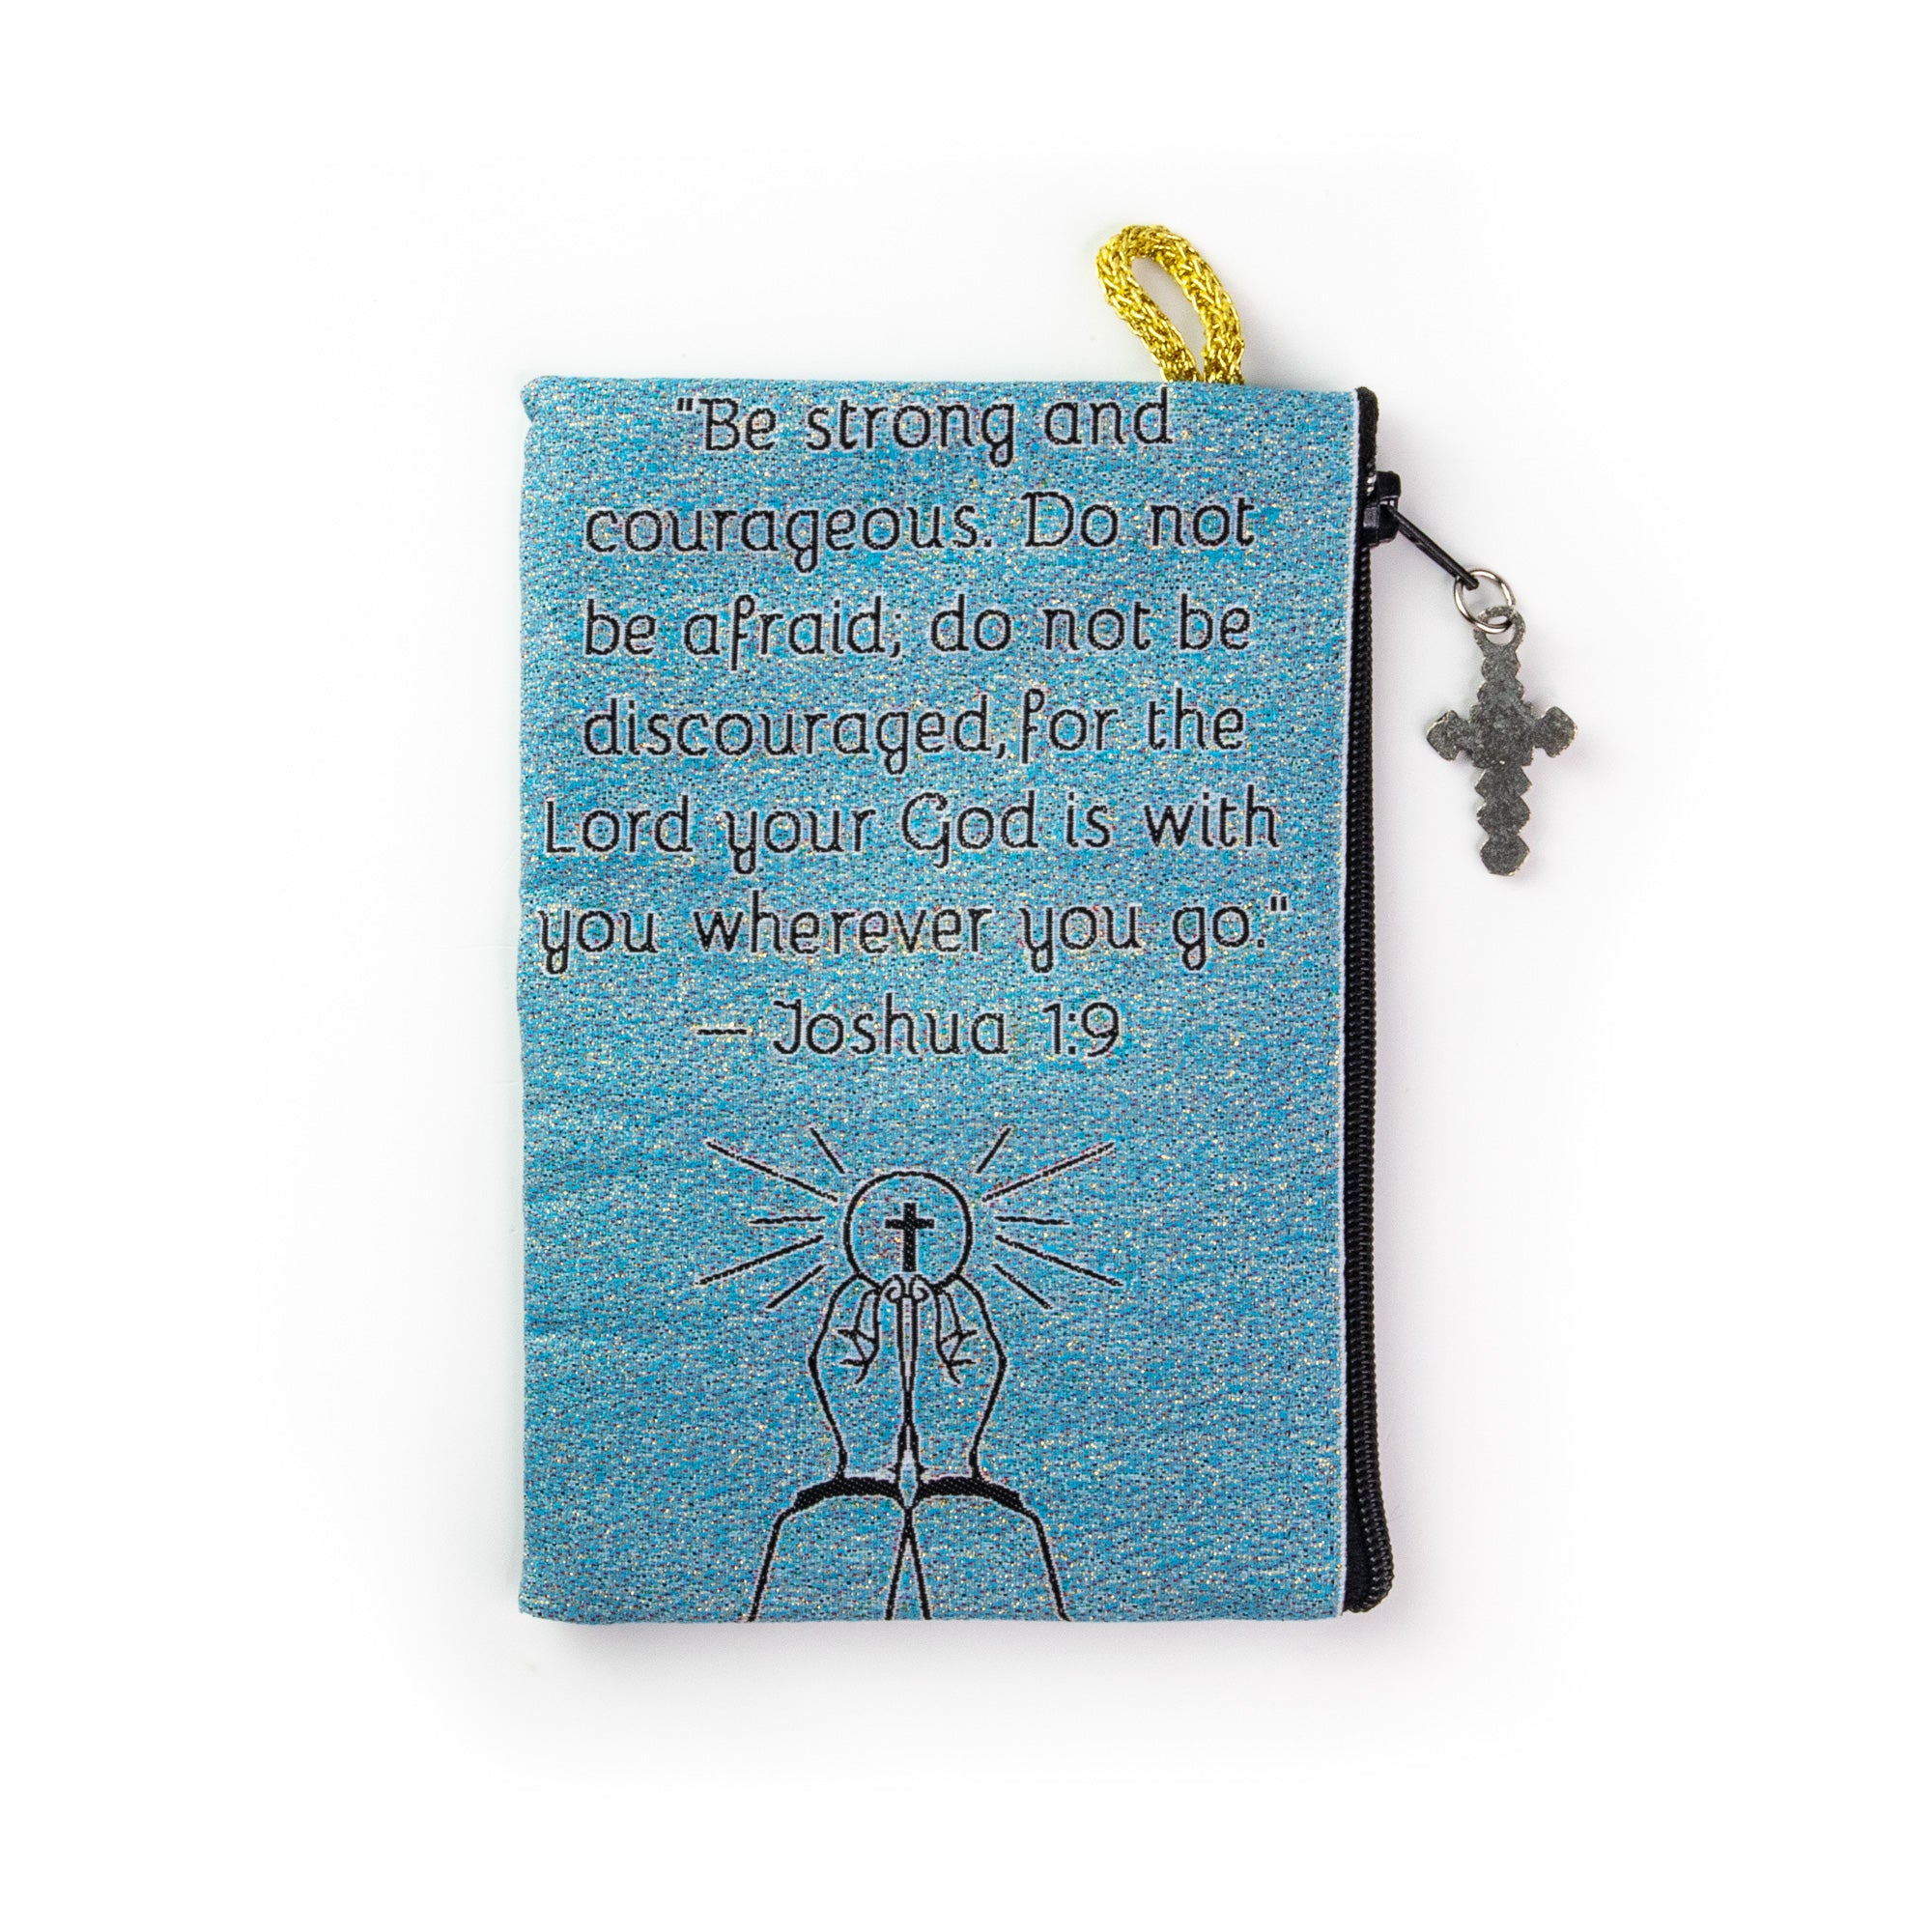 "Be strong and
courageous. Do not
be afraid; do not be
discouraged, for the
Lord your God is with
you wherever you go."
— Joshua 1:9